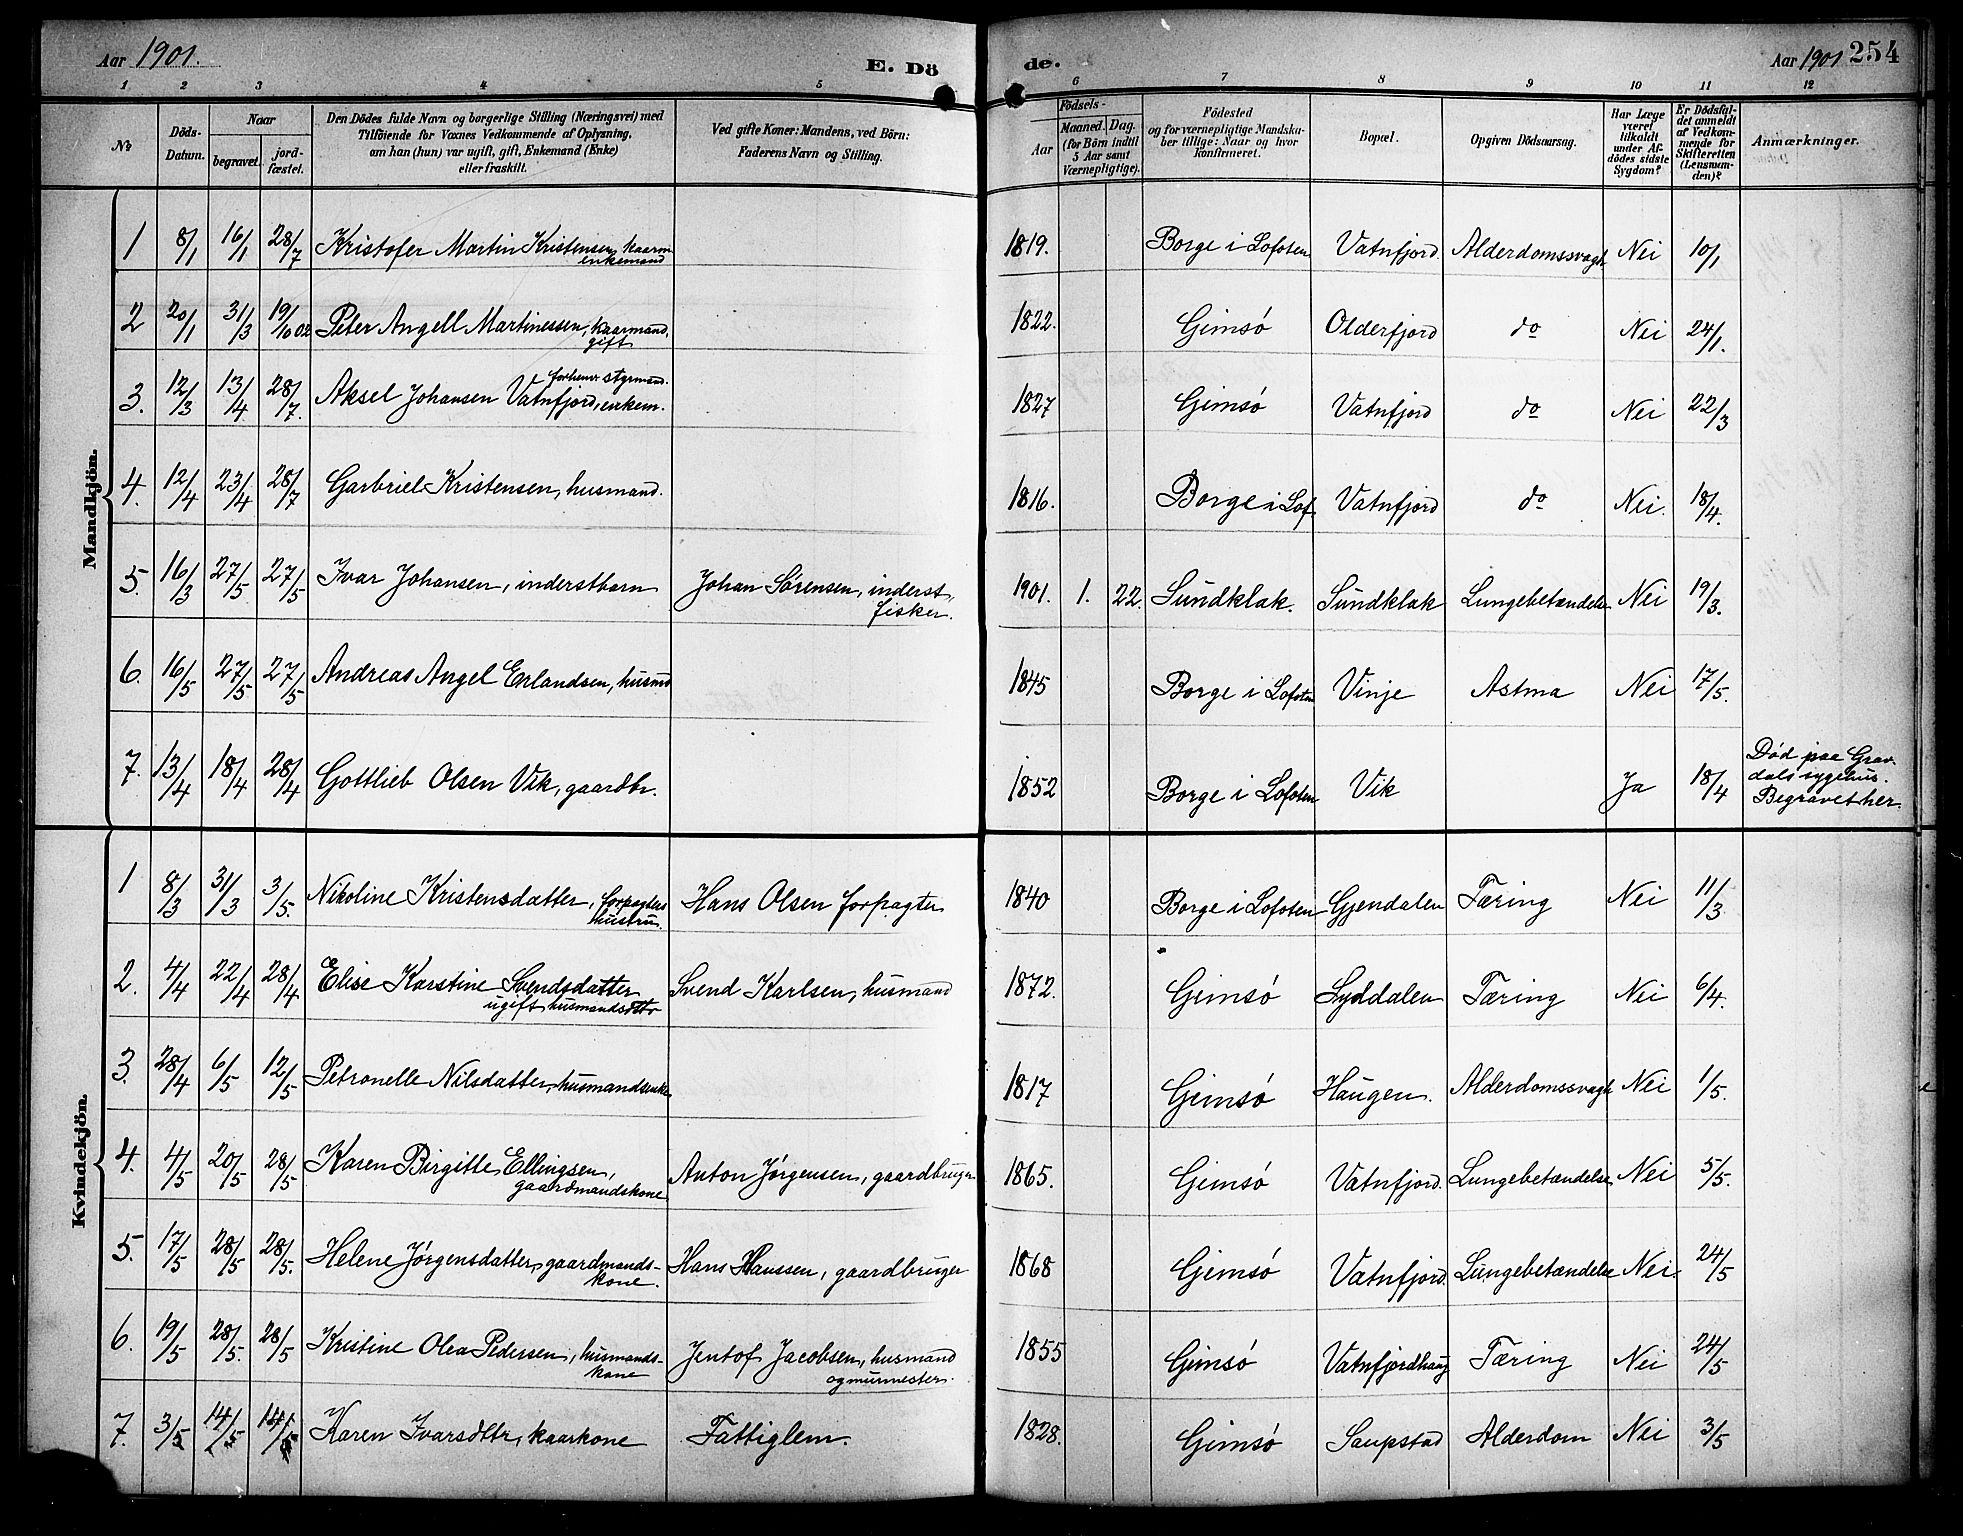 Aar 1901. E. Dö de. Aar 1901 254
1 2 3 4 5 6 7 8 9 10 11 12
№ Döds-Datum. Naar begravet. jord-fæstet. Den Dödes fulde Navn og borgerlige Stilling (Næringsvei) med Tilføiende for Voxnes Vedkommende af Oplysning, om han (hun) var ugift, gift, Enkemand (Enke) eller fraskilt. Ved gifte Koner: Mandens, ved Börn: Faderens Navn og Stilling. Födsels- Aar Maaned. Dag. (for Börn indtil 5 Aar samt Værnepligtige). Födested og for værnepligtige Mandskaber tillige: Naar og hvor konfirmeret. Bopæl. Opgiven Dödsaarsag. Har Læge været tilkaldt under Afdödes sidste Sygdom? Er Dödsfaldet anmeldt af Vedkommende for Skifteretten (Lensmanden)? Anmærkninger.
Mandkjön.
1 8/1 16/1 28/7 Kristofer Martin Kristensen, kaarm. enkemand 1819. Borge i Lofoten Vatnfjord. Alderdomssvagh Nei 10/1
2 20/1 31/3 19/10 02 Peter Angell Martinessen, kaarmand, gift 1822. Gimsö Olderfjord do Nei 24/1.
3. 12/3 13/4 28/7. Aksel Johansen Vatnfjord, forhenv. styrmand. enkem. 1827 Gimsö Vatnfjord do Nei 22/3
4. 12/4 23/4 28/7 Garbriel Kristensen, husmand. 1816. Borge i Lof. Vatnfjord do Nei. 18/4.
5. 16/3 27/5 27/5 Ivar Johansen, inderstbarn Johan Sørensen, inderst, fisker. 1901. 1. 22. Sundklak. Sundklak Lungebetændelse Nei 19/3.
6. 16/5 27/5 27/5 Andreas Angel Erlandsen, husmd 1845 Borge i Lofoten Vinje Astma Nei 17/5.
7. 13/4 18/4 28/4 Gottlieb Olsen Vik, gaardbr. 1852 Borge i Lofoten Vik Ja 18/4 Død paa Gravdals sygehus. Begravet her.
Kvindekjön.
1 8/3 31/3 3/5. Nikoline Kristensdatter, forpagters hustru. Hans Olsen forpagter 1840 Borge i Lofoten Gjendalen Tæring Nei 11/3
2. 4/4 22/4 28/4 Elise Karstine Svendsdatter ugift husmandsdtr Svend Karlsen, husmand 1872. Gimsö Lyddalen Tæring Nei 6/4.
3. 28/4 6/5 12/5 Petronelle Nilsdatter, husmandsenke 1817 Gimsö Haugen. Alderdomssvagh Nei 1/5.
4. 4/5 20/5 28/5 Karen Birgitte Ellingsen, gaardmandskone Anton Jørgensen, gaardbruger 1865. Gimsö Vatnfjord. Lungebetændelse Nei 5/5.
5. 17/5 28/5 28/5. Helene Jørgensdatter, gaardmandskone. Hans Hanssen, gaardbruger 1868 Gimsö Vatnfjord. Lungebetændelse Nei. 24/5
6. 19/5 28/5. 28/5 Kristine Olea Pedersen, husmandskone Jentof Jacobsen, husmand og murmester. 1855 Gimsö Vatnfjordhaug Tæring Nei 24/5
7. 3/5 14/5 14/5 Karen Ivarsdtr, kaarkone Fattiglem. 1828. Gimsö Saupstad Alderdom Nei 3/5